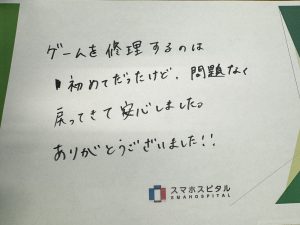 ゲームを修理するのは
初めてだったけど、問題なく
戻ってきて安心しました。
ありがとうございました!!
スマホスピタル
SMAHOSPITAL